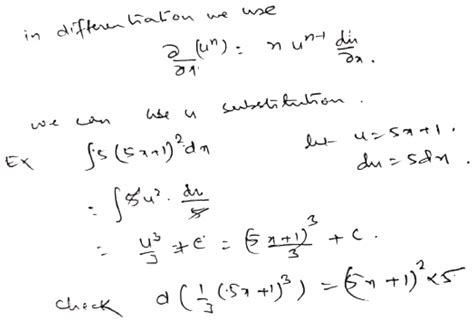 in differentiation we use
∂/∂x (uⁿ) = n uⁿ⁻¹ du/∂x.
we can use u substitution.
Ex ∫5(5x+1)²dx let u=5x+1.
= ∫5u². du/5 du=5dx.
= u³/3 + C = (5x+1)³/3 + C.
check d(⅓(5x+1)³) = (5x+1)²×5